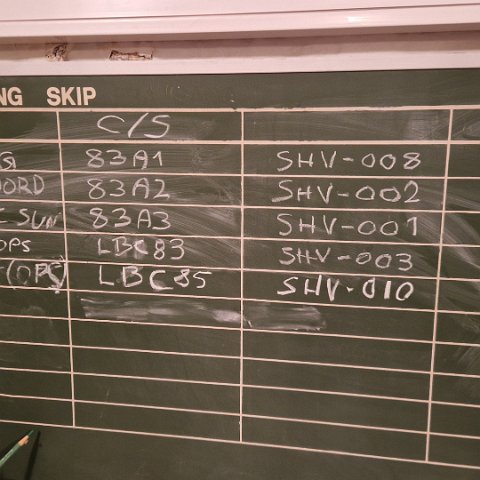 NG SKIP
C/S
83A1 SHV-008
OORD 83A2 SHV-002
SUN 83A3 SHV-001
OPS LBC83 SHV-003
(OPS) LBC85 SHV-010